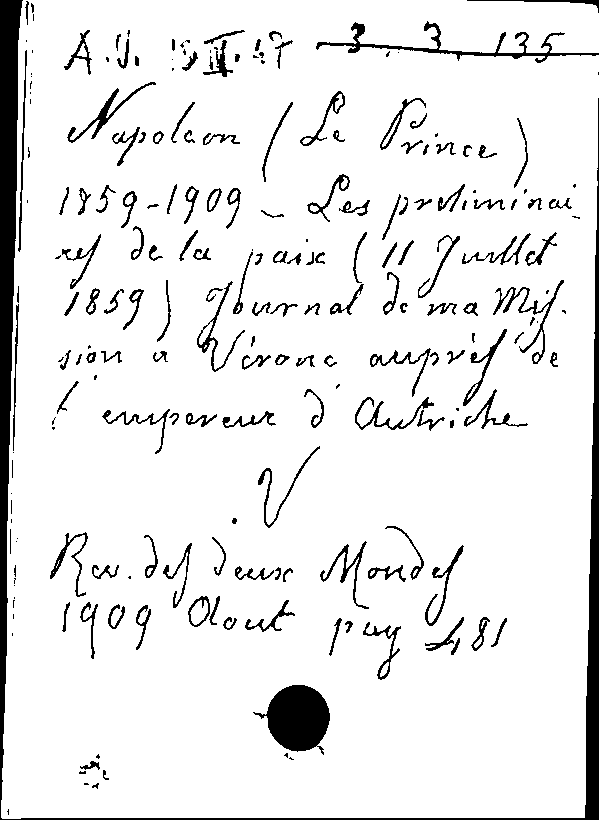 A.V. 15 II. 47 3. 3. 135
Napoleon (Le Prince)
1859-1909 - Les preliminai
res de la paix (11 Juillet
1859) Journal de ma Mis-
sion a Vérone auprès de
l'empereur d'Autriche
V
Rev. des deux Mondes
1909 Aout pag 481